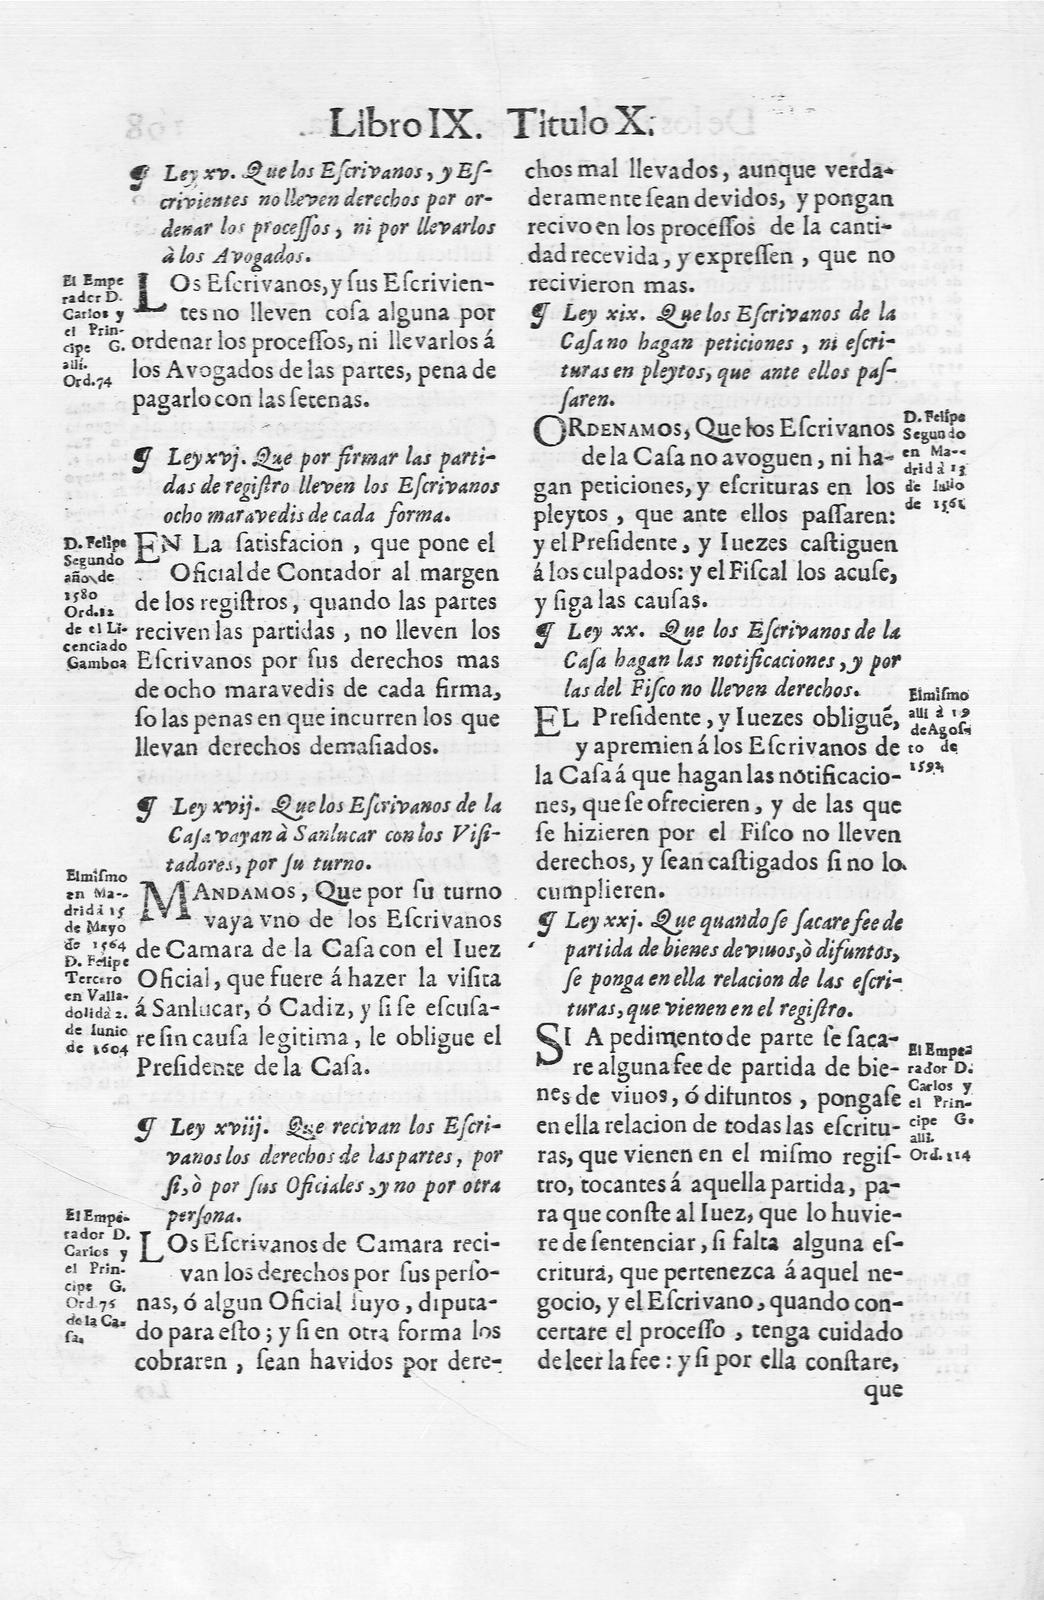 Libro IX. Titulo X.
¶ Ley xv. Que los Eſcrivanos, y Eſ-
crivientes no lleven derechos por or-
denar los proceſſos, ni por llevarlos
à los Avogados.
El Empe
rador D.
Carlos y
el Prin-
cipe G.
alli.
Ord.74
LOs Eſcrivanos, y ſus Eſcrivien-
tes no lleven coſa alguna por
ordenar los proceſſos, ni llevarlos á
los Avogados de las partes, pena de
pagarlo con las ſetenas.
¶ Ley xvj. Que por firmar las parti-
das de regiſtro lleven los Eſcrivanos
ocho maravedis de cada forma.
D. Felipe
Segundo
año de
1580
Ord.12
de el Li-
cenciado
Gamboa
EN La ſatisfacion, que pone el
Oficial de Contador al margen
de los regiſtros, quando las partes
reciven las partidas, no lleven los
Eſcrivanos por ſus derechos mas
de ocho maravedis de cada firma,
ſo las penas en que incurren los que
llevan derechos demaſiados.
¶ Ley xvij. Que los Eſcrivanos de la
Caſa vayan à Sanlucar con los Viſi-
tadores, por ſu turno.
El miſmo
en Ma-
drid á 15
de Mayo
de 1564
D. Felipe
Tercero
en Valla-
dolid à 2.
de Iunio
de 1604
MANDAMOS, Que por ſu turno
vaya vno de los Eſcrivanos
de Camara de la Caſa con el Iuez
Oficial, que fuere á hazer la viſita
á Sanlucar, ó Cadiz, y ſi ſe escuſa-
re ſin cauſa legitima, le obligue el
Preſidente de la Caſa.
¶ Ley xviij. Que recivan los Eſcri-
vanos los derechos de las partes, por
ſi, ò por ſus Oficiales, y no por otra
perſona.
El Empe-
rador D.
Carlos y
el Prin-
cipe G.
Ord.75
de la Ca-
ſa.
LOs Eſcrivanos de Camara reci-
van los derechos por ſus perſo-
nas, ó algun Oficial ſuyo, diputa-
do para eſto; y ſi en otra forma los
cobraren, ſean havidos por dere-
chos mal llevados, aunque verda-
deramente ſean devidos, y pongan
recivo en los proceſſos de la canti-
dad recevida, y expreſſen, que no
recivieron mas.
¶ Ley xix. Que los Eſcrivanos de la
Caſa no hagan peticiones, ni eſcri-
turas en pleytos, que ante ellos paſ-
ſaren.
D. Felipe
Segundo
en Ma-
drid á 13
de Iulio
de
ORDENAMOS, Que los Eſcrivanos
de la Caſa no avoguen, ni ha-
gan peticiones, y eſcrituras en los
pleytos, que ante ellos paſſaren:
y el Preſidente, y Iuezes caſtiguen
á los culpados: y el Fiſcal los acuſe,
y ſiga las cauſas.
¶ Ley xx. Que los Eſcrivanos de la
Caſa hagan las notificaciones, y por
las del Fiſco no lleven derechos.
El miſmo
alli á 19
de Agoſ-
to de
1592
EL Preſidente, y Iuezes obligué,
y apremien á los Eſcrivanos de
la Caſa á que hagan las notificacio-
nes, que ſe ofrecieren, y de las que
ſe hizieren por el Fiſco no lleven
derechos, y ſean caſtigados ſi no lo
cumplieren.
¶ Ley xxj. Que quando ſe ſacare fee de
partida de bienes de vivos, ò difuntos,
ſe ponga en ella relacion de las eſcri-
turas, que vienen en el regiſtro.
El Empe
rador D.
Carlos y
el Prin-
cipe G.
alli.
Ord.114
SI A pedimento de parte ſe ſaca-
re alguna fee de partida de bie-
nes de vivos, ó difuntos, pongaſe
en ella relacion de todas las eſcritu-
ras, que vienen en el miſmo regiſ-
tro, tocantes á aquella partida, pa-
ra que conſte al Iuez, que lo huvie-
re de ſentenciar, ſi falta alguna eſ-
critura, que pertenezca á aquel ne-
gocio, y el Eſcrivano, quando con-
certare el proceſſo, tenga cuidado
de leer la fee: y ſi por ella conſtare,
que